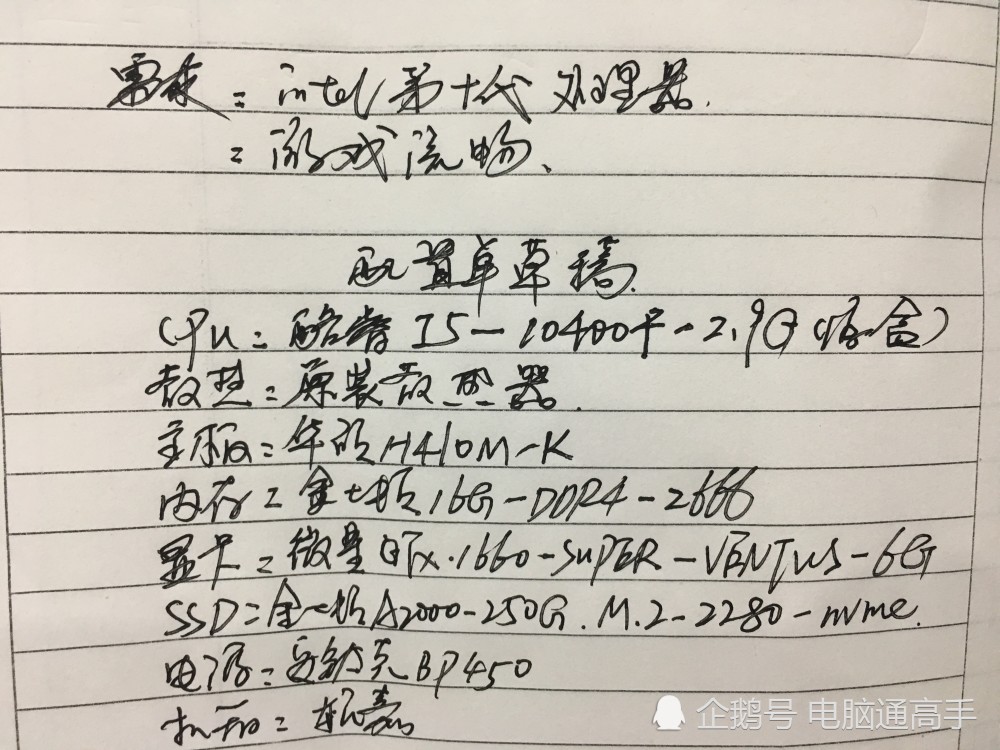 需求: intel 第十代处理器.
: 游戏流畅、
配置单草稿
CPU: 酷睿 I5-10400F-2.9G (原盒)
散热: 原装散热器.
主板: 华硕H410M-K
内存: 金士顿16G-DDR4-2666
显卡: 微星GTX.1660-SUPER-VENTUS-6G
SSD: 金士顿A2000-250G.M.2-2280-nvme.
电源: 安钛克BP450
机箱: 航嘉
企鹅号 电脑通高手